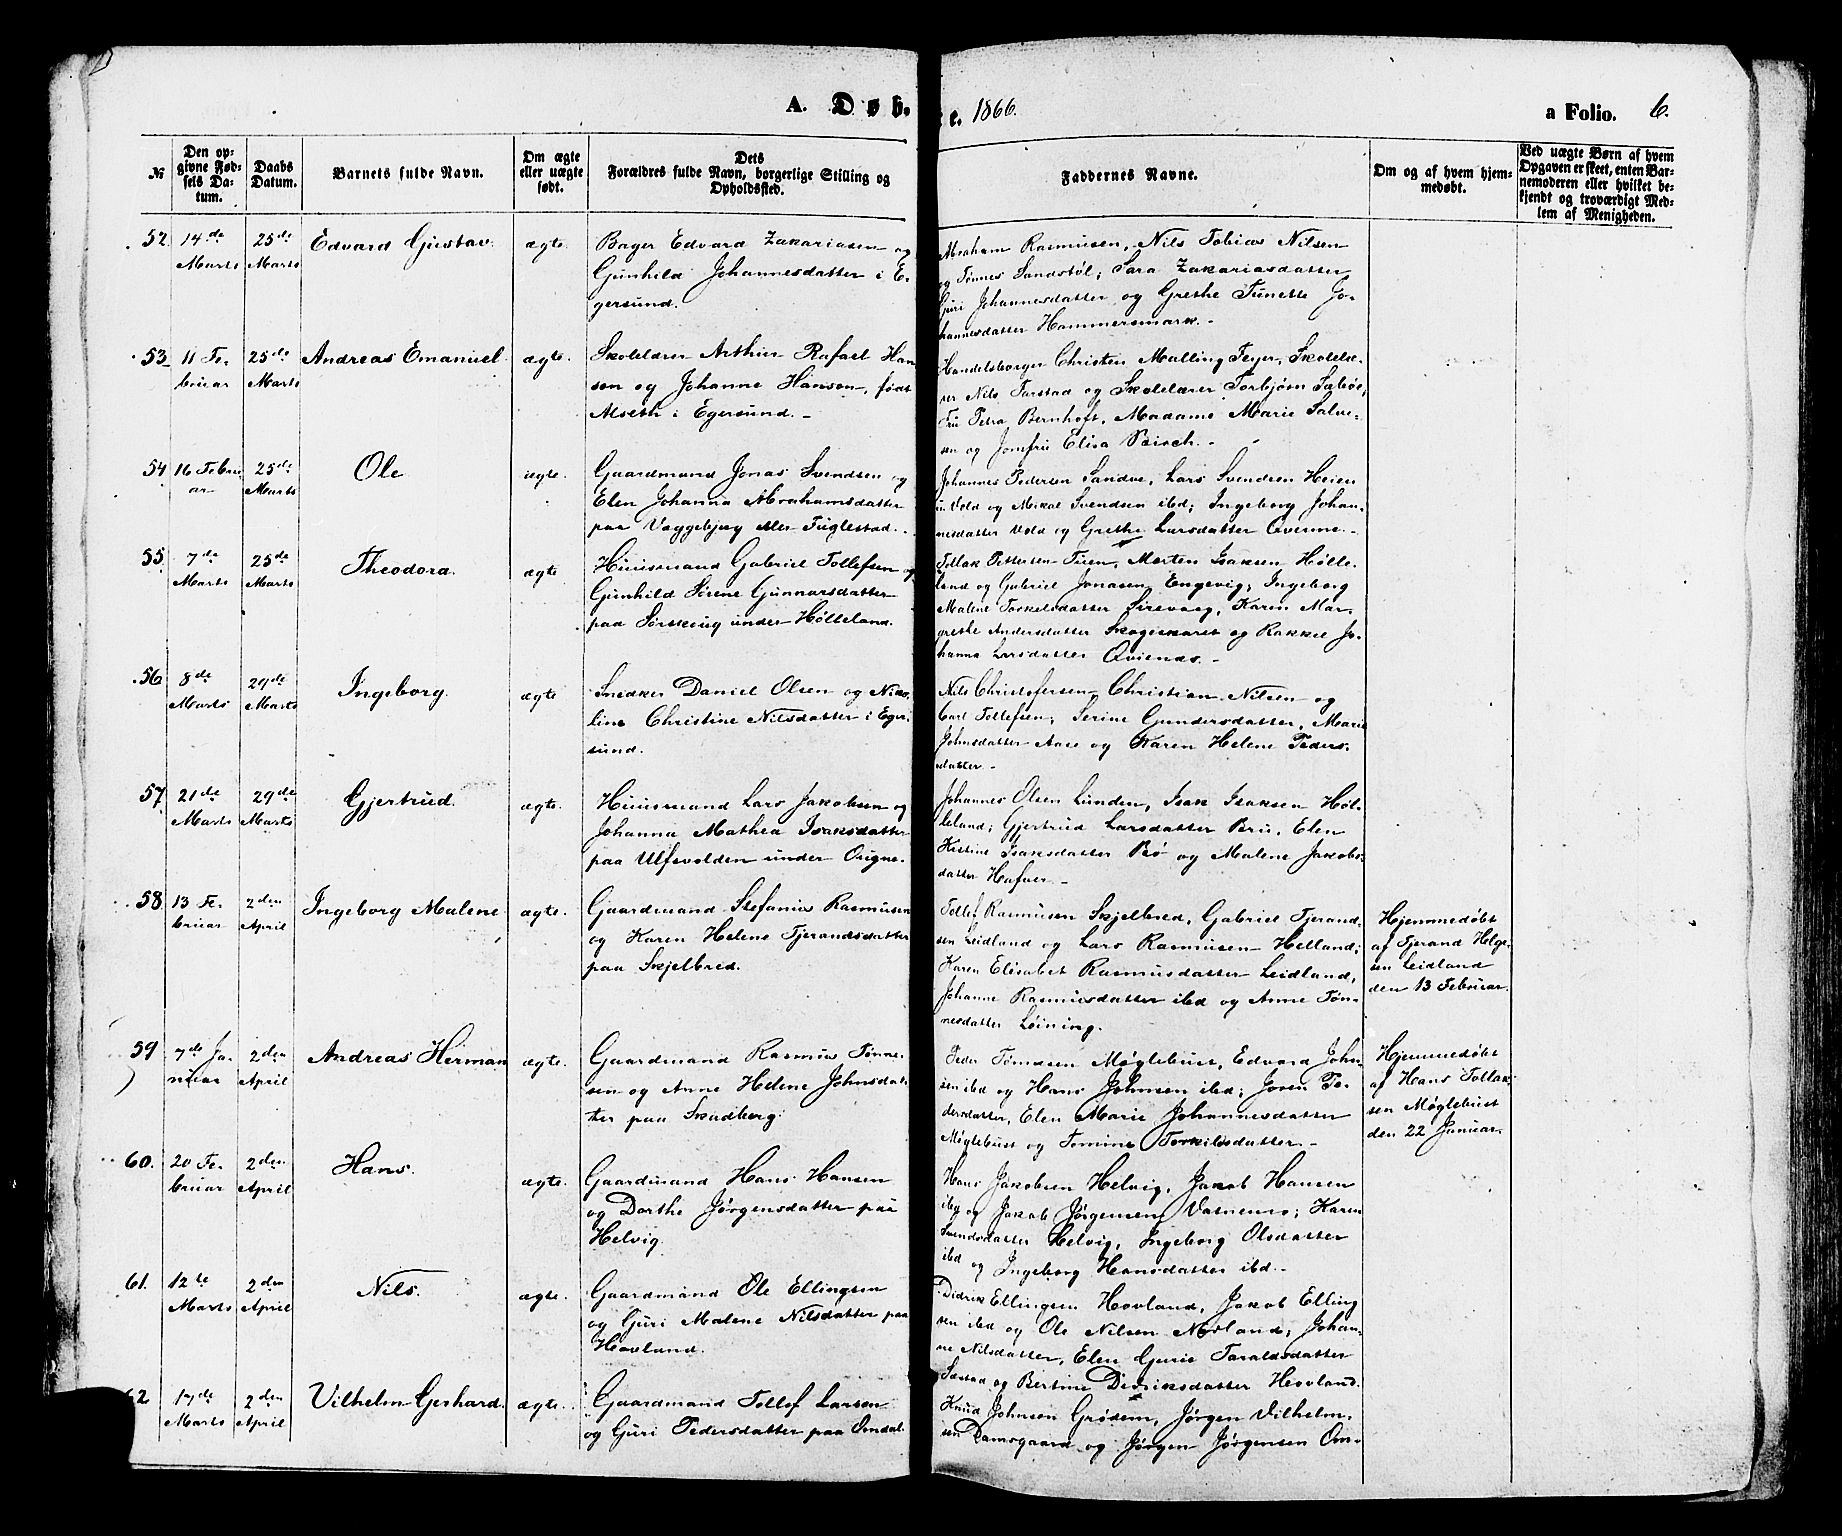 A. Døb. e. 1866. a Folio. 6.
№ Den op-
givne Fød-
sels Da-
tum.
Daabs
Datum.
Barnets fulde Navn.
Om ægte
eller uægte
født.
Dets
Forældres fulde Navn, borgerlige Stilling og
Opholdssted.
Faddernes Navne.
Om og af hvem hjem-
medøbt.
Ved uægte Børn af hvem
Opgaven er skeet, enten Bar-
nemoderen eller hvilket be-
kjendt og troværdigt Med-
lem af Menigheden.
52. 14de Marts 25de Marts Edvard Gustav. ægte.
Bager Edvard Zakariasen og
Gunhild Johannesdatter i E-
gersund.
Abraham Rasmusen, Nils Tobias Nilsen
og Tønnes Sandstøl; Sara Zakariasdatter
Guri Johannesdatter og Grethe Tunette Jo-
hannesdatter Hammersmark.-
53. 11 Februar 25de Marts Andreas Emanuel. ægte.
Skolelærer Arthur Rafael Han
sen og Johanne Hanson, født
Alseth i Egersund.-
Handelsborger Christen Malling Feyer, Skolelæ-
rer Nils Tarstad og Skolelærer Torbjørn Sæbøe,
Fru Petra Bernhoft, Madame Marie Salve-
sen og Jomfru Elisa .-
54 16 Februar 25de Marts Ole ægte.
Gaardmand Jonas Svendsen og
Elen Johanna Abrahamsdatter
paa eller Fuglestad.-
Johannes Pedersen Sandve, Lars Svendsen Heien
u. Vold og Mikal Svendsen ibd; Ingeborg Johan-
nesdatter Vold og Grethe Larsdatter .-
55. 7de Marts 25de Marts Theodora. ægte
Huusmand Gabriel Tollefsen og
Gunhild Serene Gunnarsdatter
paa Sørskoug under Hølleland.
Tollak Pettersen , Morten Isaksen Hølle-
land og Gabriel Jonasen Engevig; Ingeborg
Malene Torkelsdatter Sirevaag, Karen Mar-
grethe Andersdatter Skogeskaret og Rakkel Jo-
hanna Larsdatter .-
56 8de Marts 29de Marts Ingeborg. ægte
Snedker Daniel Olsen og Niko-
line Christine Nilsdatter i Eger-
sund.
Nils Christofersen, Christian Nilsen og
Carl Tollefsen; Serine Gundersdatter, Marie
Johnsdatter Aase og Karen Helene Peders-
datter.-
57. 21de Marts 29de Marts Gjertrud. ægte.
Huusmand Lars Jakobsen og
Johanna Mathea Isaksdatter
paa Ulfsvolden under .
Johannes Olsen Lunden, Isak Isaksen Høl-
leland; Gjertrud Larsdatter Bru, Elen
Kistine Isaksdatter Bø og Malene Jakobs-
datter .-
58 13 Februar 2den April Ingeborg Malene ægte.
Gaardmand Stefanius Rasmusen
og Karen Helene Tjerandsdatter
paa Skjelbred.
Tollef Rasmusen Skjelbred, Gabriel Tjerand-
sen Leidland og Lars Rasmusen Helland;
Karen Elisabet Rasmusdatter Leidland,
Johanne Rasmusdatter ibd og Anne Tøn-
nesdatter Løining.
Hjemmedøbt
af Tjerand Helge-
sen Leidland
den 13 Februar.
59 7de Januar 2den April Andreas Herman ægte.
Gaardmand Rasmus Tønne-
sen og Anne Helene Johnsdat-
ter paa Skadberg.
Peder Tønnesen Møglebust, Edvard John-
sen ibd og Hans Johnsen ibd; Joren Pe-
dersdatter, Elen Marie Johannesdatter
Møglebust og Tomine Torkilsdatter.-
Hjemmedøbt
af Hans Tollak-
sen Møglebust
den 22 Januar.
60. 20 Februar 2den April Hans. ægte.
Gaardmand Hans Hansen
og Dorthe Jørgensdatter paa
Helvig.
Hans Jakobsen Helvig, Jakob Hansen
ibd og Jakob Jørgensen ; Karen
Svendsdatter Helvig, Ingeborg Olsdatter
ibd og Ingeborg Hansdatter ibd.-
61. 12te Marts 2den April Nils. ægte.
Gaardmand Ole Ellingsen
og Guri Malene Nilsdatter paa
Hovland.
Didrik Ellingsen Hovland, Jakob Elling
sen ibd og Ole Nilsen Nodland; Johan-
ne Nilsdatter, Elen Gurie Taraldsdatter
og Bertine Didriksdatter Hovland.
62 17de Marts 2den April Vilhelm Gerhard. ægte.
Gaardmand Tollef Larsen
og Guri Pedersdatter paa Omdal.
Knud Johnsen Grødem, Jørgen Vilhelm-
sen Damsgaard og Jørgen Jørgensen Om-